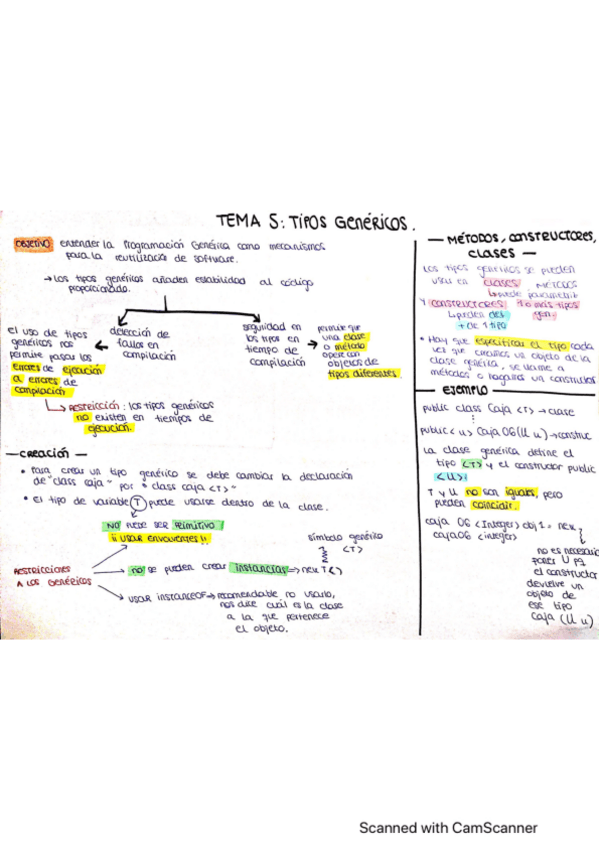 TEMA 5: TIPOS GENÉRICOS.
OBJETIVO entender la Programación Genérica como mecanismos
para la reutilización de software.
→ Los tipos genéricos añaden estabilidad al código
proporcionado.
el uso de tipos
genéricos nos
permite pasar los
errores de ejecución
a errores de
compilación
detección de
fallos en
compilación
seguridad en
los tipos en
tiempo de
compilación
permite que
una clase
o método
opere con
objetos de
tipos diferentes.
RESTRICCIÓN: los tipos genéricos
no existen en tiempos de
ejecución.
— CREACIÓN —
• Para crear un tipo genérico se debe cambiar la declaración
de "class caja" por "class caja <T>"
• El tipo de variable T puede usarse dentro de la clase.
RESTRICCIONES
A LOS GENÉRICOS
NO debe ser PRIMITIVO!
¡¡ USAR ENVOLVENTES!!
símbolo genérico
<T>
no se pueden crear instancias → new T()
USAR INSTANCEOF → recomendable no usarlo,
nos dice cuál es la clase
a la que pertenece
el objeto.
— MÉTODOS, CONSTRUCTORES,
CLASES —
Los tipos genéricos se pueden
usar en CLASES, MÉTODOS
↳ puede
Y CONSTRUCTORES 1 o más tipos
↳ pueden des gen-
+ de 1 tipo
• Hay que especificar el tipo cada
vez que creamos un objeto de la
clase genérica, se llame a
métodos o hagamos un constructor
— EJEMPLO —
public class Caja <T> → clase
public <U> Caja 06 (U u) → construc
La clase genérica define el
tipo <T> y el constructor public
<U>!
T y U no son iguales, pero
pueden coincidir.
caja 06 <Integer> obj1 = new
caja06 <integer>
no es necesario
poner U pq
el constructor
devuelve un
objeto de
ese tipo
Caja (U u)
Scanned with CamScanner